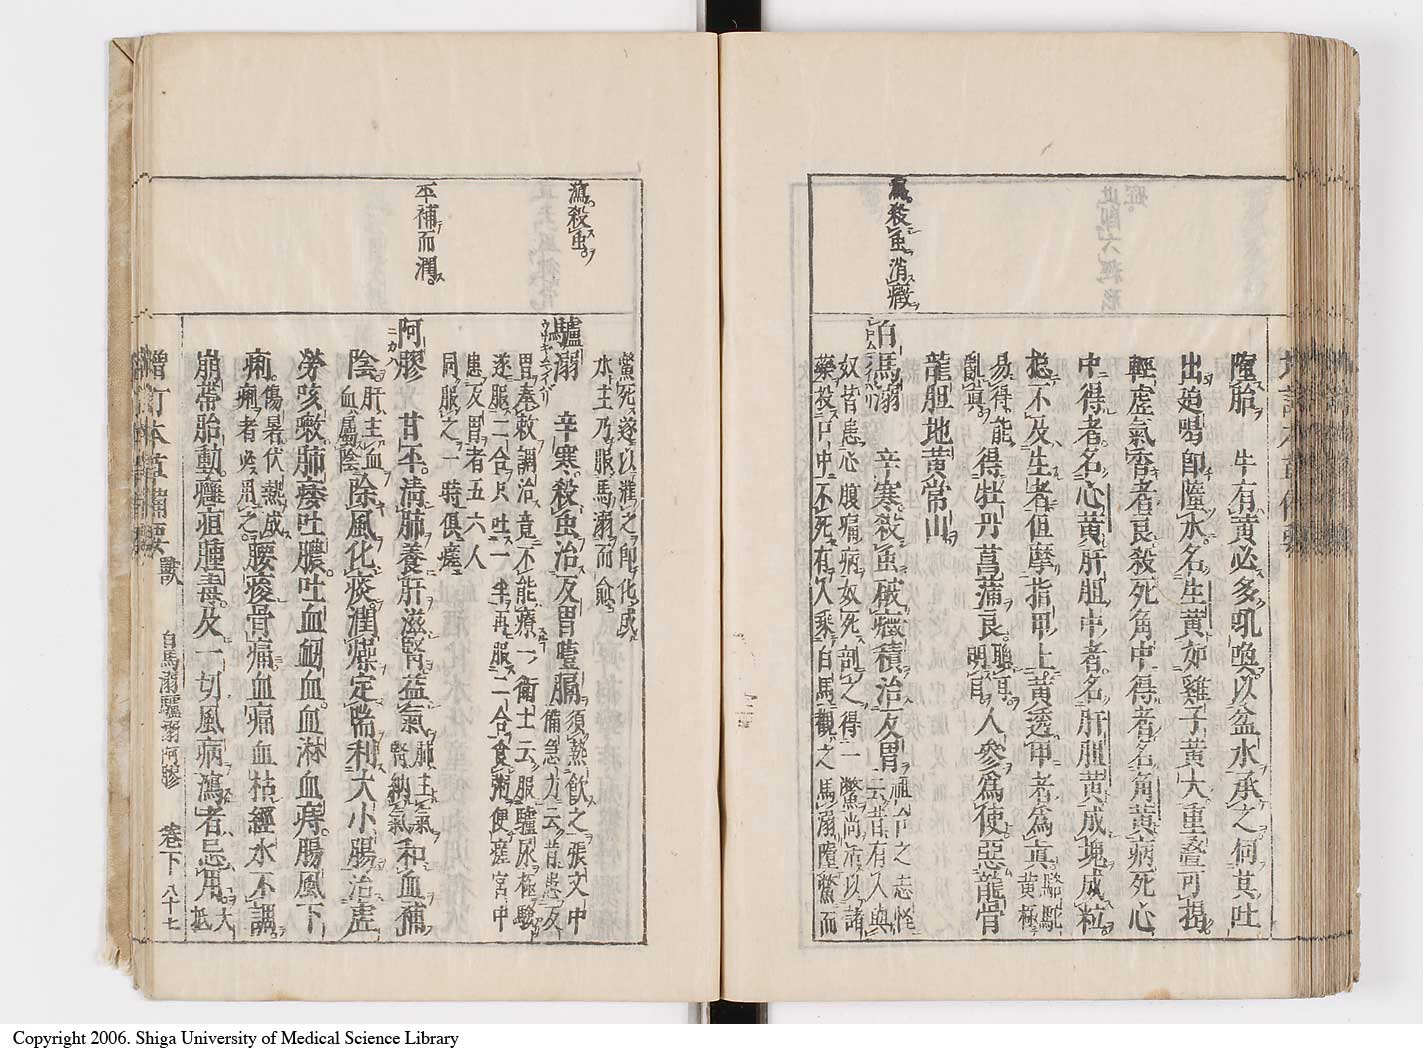 瀉殺虫消癥
墮胎 牛有黃必多吼喚以盆水承之伺其吐
出廹喝即墮水名生黃如雞子黃大重疊可揭
輕虛氣香者良殺死角中得者名角黃病死心
中得者名心黃肝胆中者名肝胆黃成塊成粒
揔不及生者但摩指甲上黃透甲者為真駱駝黃極
易得能亂真得牡丹菖蒲良聰耳明目人參為使惡龍骨
龍胆地黃常山
白馬溺 辛寒殺虫破癥積治反胃祖台之志怪云昔有人與
奴皆患心腹痛病奴死剖之得一鱉尚活以諸
藥投口中不死有人乘白馬觀之馬溺墮鱉而
瀉殺虫
平補而潤
鱉死遂以灌之即化成
水主乃服馬溺而愈
驢溺 辛寒殺虫治反胃噎膈須熱飲之張文中備急方云昔患反
胃奉敕調治竟不能療一衛士云服驢尿極驗
遂服二合只吐一半再服二合食粥便瘥宮中
患反胃者五六人
同服之一時俱瘥
阿膠 甘平清肺養肝滋腎益氣肺主氣腎納氣和血補
陰肝主血血屬陰除風化痰潤燥定喘利大小腸治虛
勞咳嗽肺痿吐膿吐血衄血血淋血痔腸風下
痢傷暑伏熱成痢者必用之腰痠骨痛血痛血枯經水不調
崩帶胎動癰疽腫毒及一切風病瀉者忌用大抵
增訂本草備要 獸 白馬溺驢溺阿膠 卷下 八十七
Copyright 2006. Shiga University of Medical Science Library